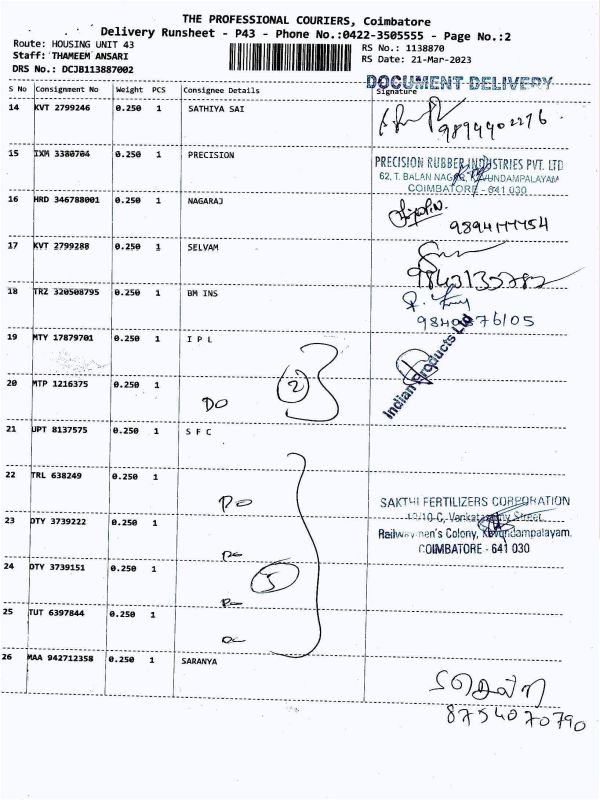 THE PROFESSIONAL COURIERS, Coimbatore
Delivery Runsheet - P43 - Phone No.:0422-3505555 - Page No.:2
Route: HOUSING UNIT 43
RS No.: 1138870
Staff: THAMEEM ANSARI
RS Date: 21-Mar-2023
DRS No.: DCJB113887002
DOCUMENT DELIVERY
S No Consignment No Weight PCS Consignee Details Signature
14 KVT 2799246 0.250 1 SATHIYA SAI
9894402276
15 IXM 3380704 0.250 1 PRECISION
PRECISION RUBBER INDUSTRIES PVT. LTD
62, T. BALAN NAGAR, KAVUNDAMPALAYAM
COIMBATORE - 641 030
16 HRD 346788001 0.250 1 NAGARAJ
17 KVT 2799288 0.250 1 SELVAM
18 TRZ 320508795 0.250 1 BM INS
9840876105
19 MTY 17879701 0.250 1 I P L
Indian Products Ltd
20 MTP 1216375 0.250 1
2
DO
21 UPT 8137575 0.250 1 S F C
22 TRL 638249 0.250 1
DO
SAKTHI FERTILIZERS CORPORATION
Street,
23 DTY 3739222 0.250 1
Railwaymen's Colony, Kavundampalayam,
COIMBATORE - 641 030
DO
24 DTY 3739151 0.250 1
5
DO
25 TUT 6397844 0.250 1
DO
26 MAA 942712358 0.250 1 SARANYA
8754070790